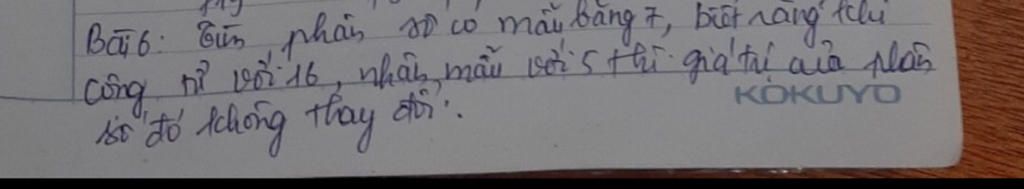 Bài 6: Tìm phân số có mẫu bằng 7, biết rằng khi
cộng tử với 16, nhân mẫu với 5 thì giá trị của phân
số đó không thay đổi.
KOKUYO